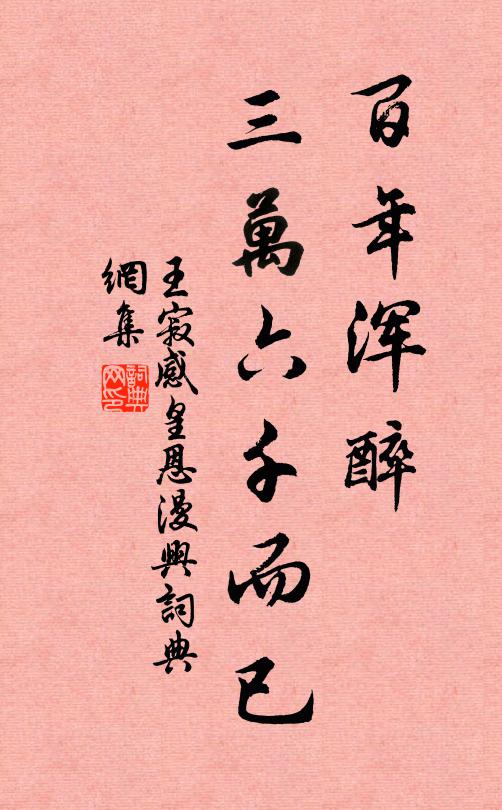 百年浑醉
三萬六千而已
王寂感皇恩漫興詞典
網集
詞典網印